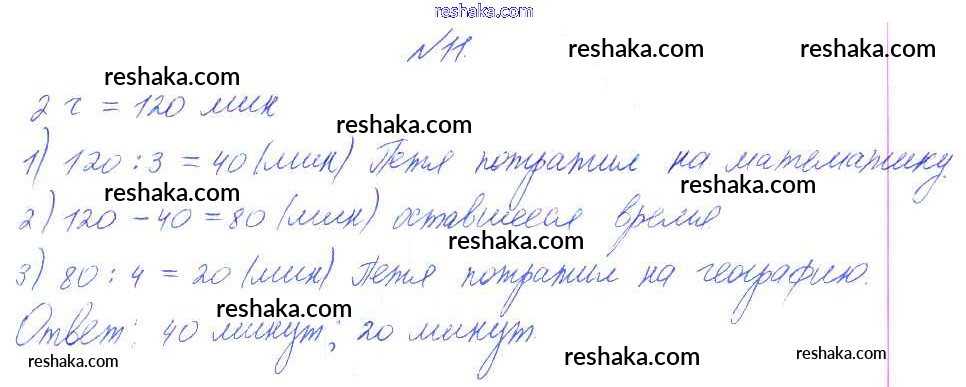 reshaka.com
№ 11. reshaka.com reshaka.com
reshaka.com
2 ч = 120 мин
reshaka.com
1) 120 : 3 = 40 (мин) Петя потратил на математику.
reshaka.com reshaka.com reshaka.com
2) 120 - 40 = 80 (мин) оставшееся время
reshaka.com
3) 80 : 4 = 20 (мин) Петя потратил на географию.
reshaka.com reshaka.com
Ответ: 40 минут; 20 минут.
reshaka.com reshaka.com reshaka.com